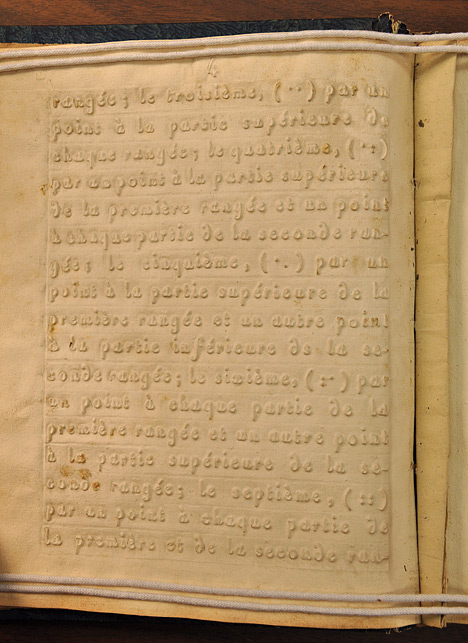 4
rangée; le troisième, (··) par un
point à la partie supérieure de
chaque rangée; le quatrième, (·:)
par un point à la partie supérieure
de la première rangée et un point
à chaque partie de la seconde ran-
gée; le cinquième, (·.) par un
point à la partie supérieure de la
première rangée et un autre point
à la partie inférieure de la se-
conde rangée; le sixième, (:·) par
un point à chaque partie de la
première rangée et un autre point
à la partie supérieure de la se-
conde rangée; le septième, (::)
par un point à chaque partie de
la première et de la seconde ran-